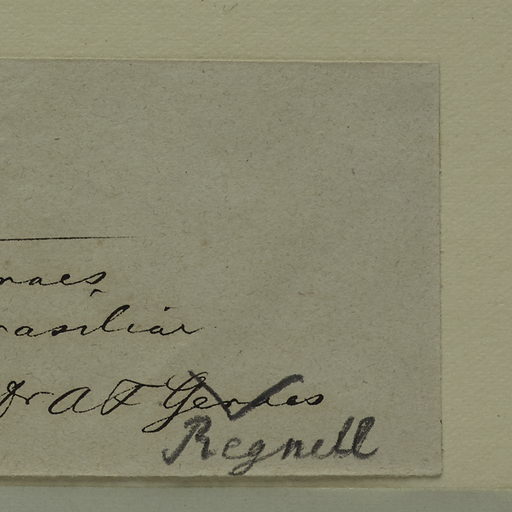 naes,
rasiliar
Dr A F Gernes
Regnell